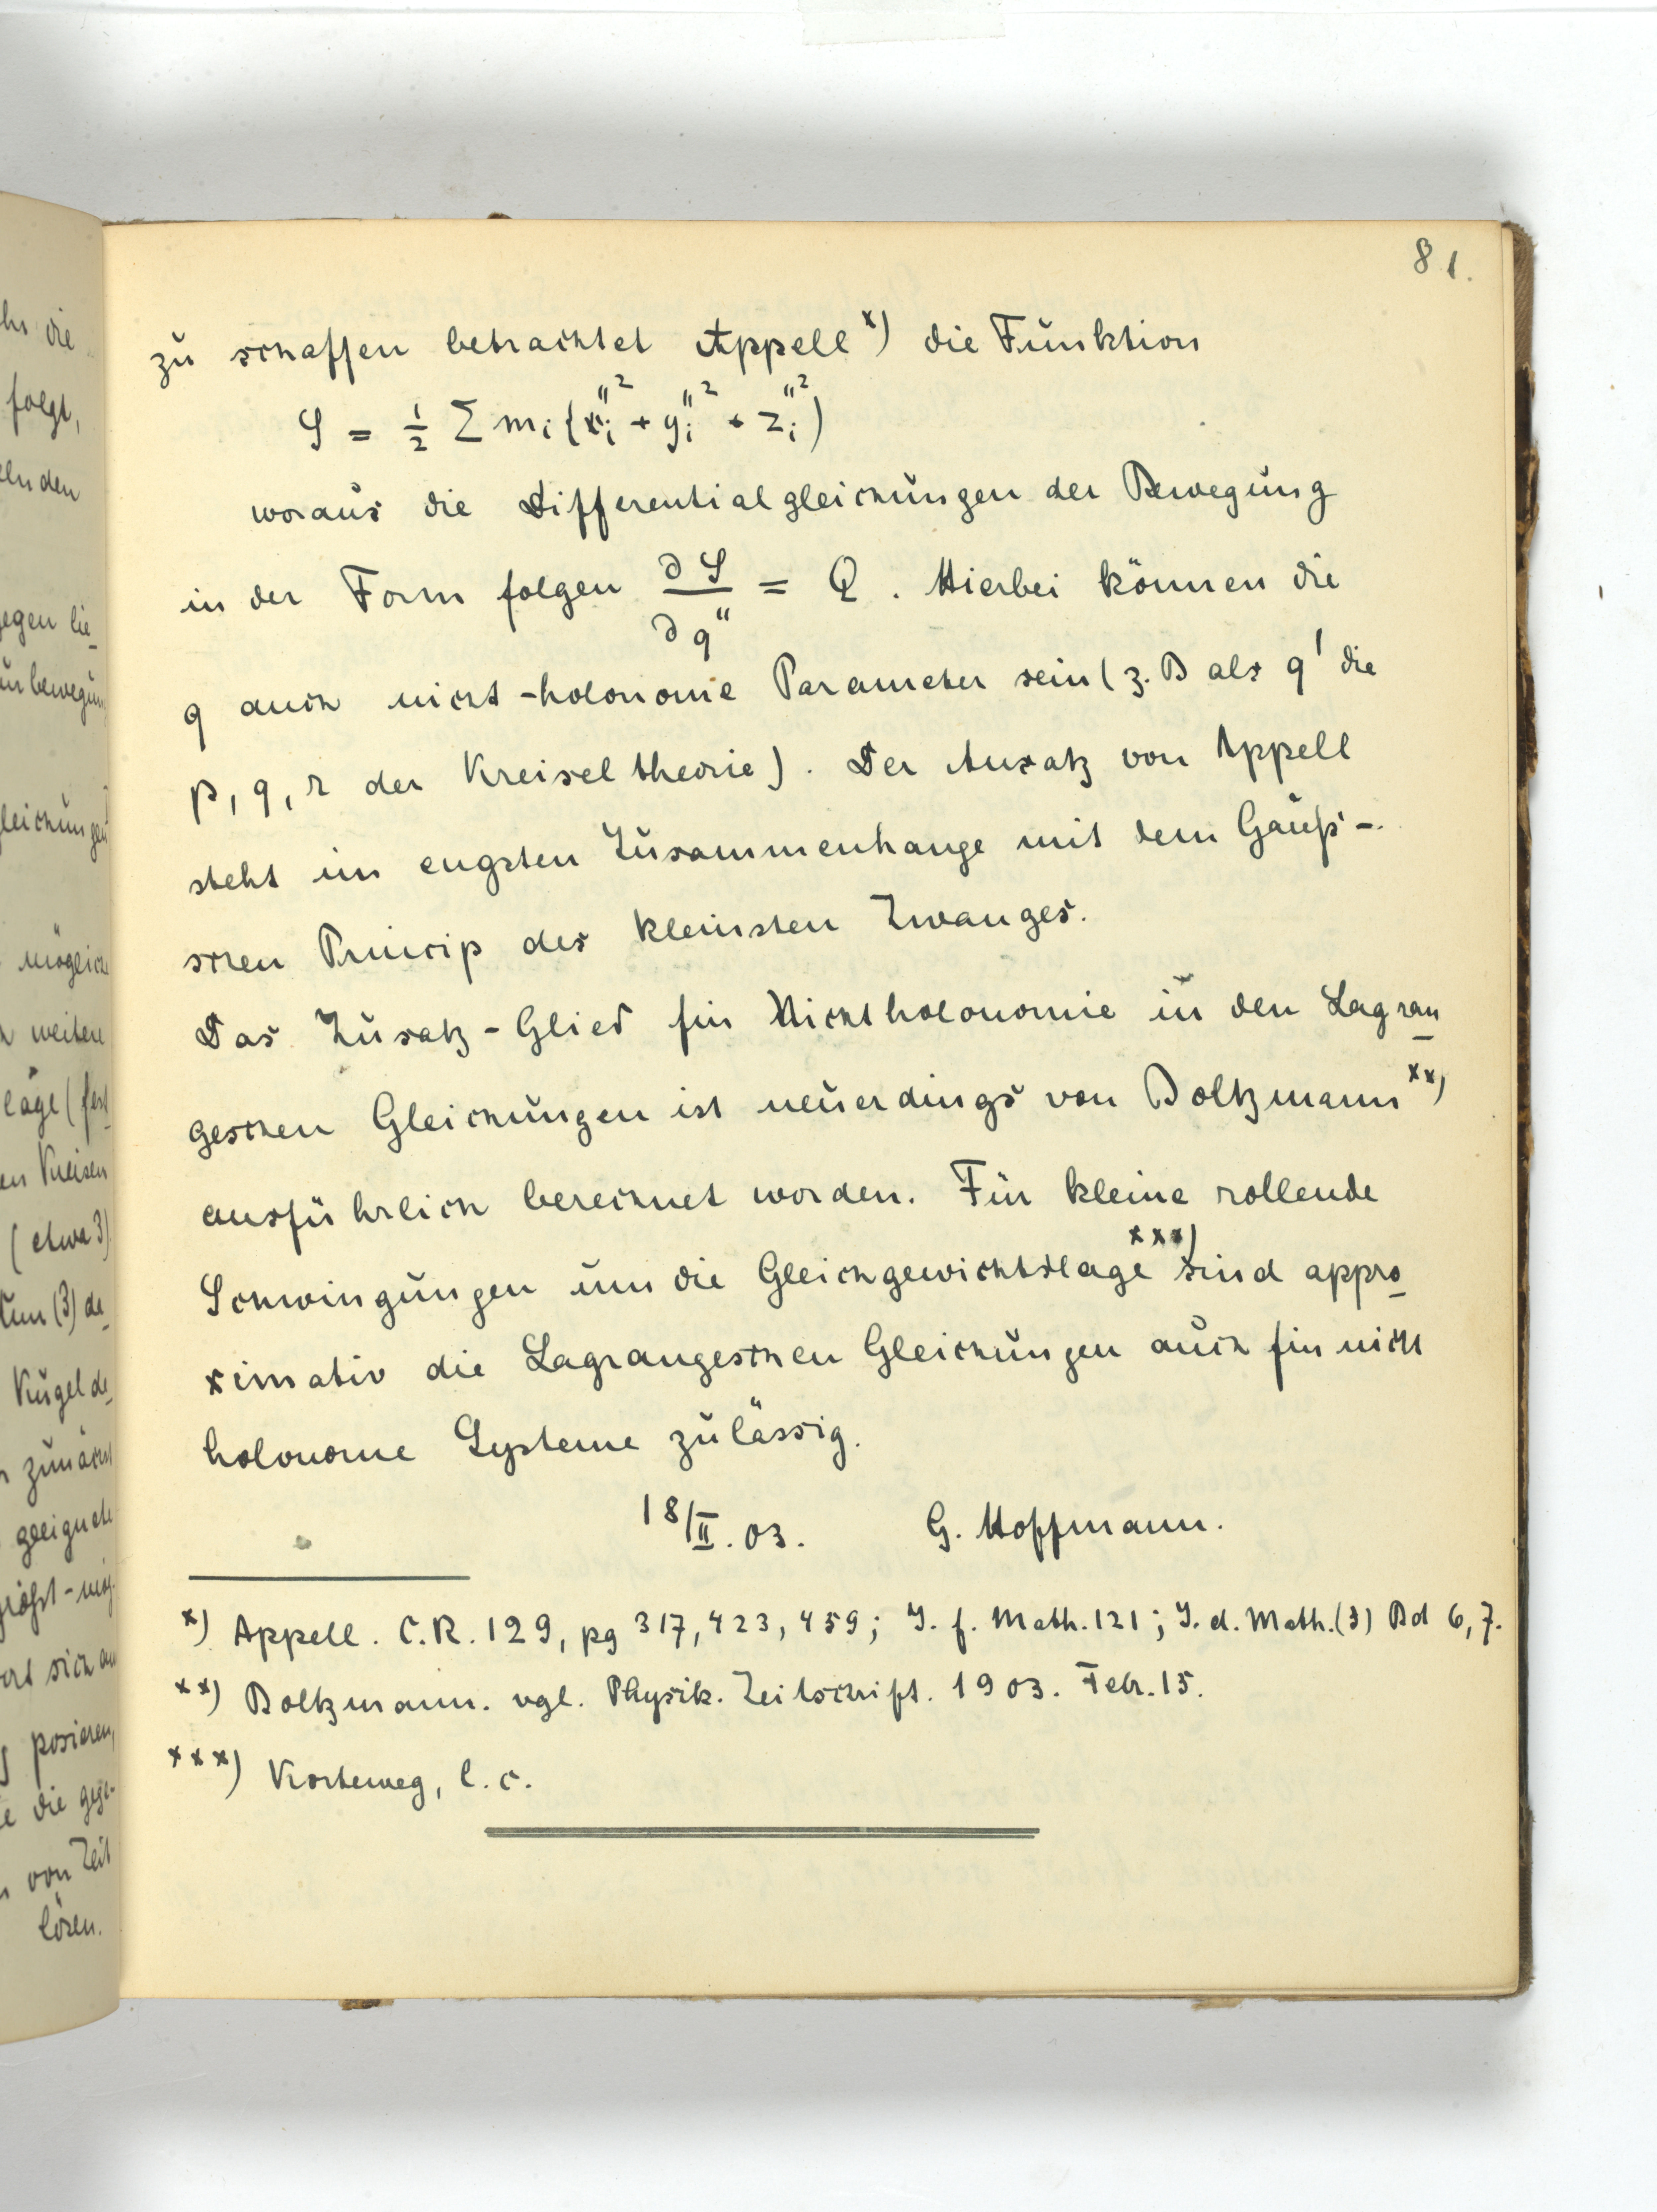 81.
zu schaffen betrachtet Appell x) die Funktion
S = 1/2 Σ mi (xi''² + yi''² + zi''²)
woraus die Differentialgleichungen der Bewegung
in der Form folgen ∂S/∂q'' = Q. Hierbei können die
q auch nicht-holonome Parameter sein (z. B als q' die
p, q, r der Kreiseltheorie). Der Ansatz von Appell
steht im engsten Zusammenhange mit dem Gauß-
schen Princip des kleinsten Zwanges.
Das Zusatz-Glied für Nichtholonomie in den Lagran
geschen Gleichungen ist neuerdings von Boltzmann xx)
ausführlich berechnet worden. Für kleine rollende
Schwingungen um die Gleichgewichtslage xxx) sind appro
ximativ die Lagrangeschen Gleichungen auch für nicht
holonome Systeme zulässig.
18/II. 03. G. Hoffmann.
x) Appell. C.R. 129, pg 317, 423, 459; J. f. Math. 121; J. d. Math. (3) Bd 6, 7.
xx) Boltzmann. vgl. Physik. Zeitschrift. 1903. Febr. 15.
xxx) Korteweg, l. c.
die
folgt,
elnden
gegen lie
leichungen
möglich
weitere
lage (fest
en Kreisen
(etwa 3)
(3) de
Kugel de
zunächst
geeignete
sich
posieren,
die
von Zeit
lösen.